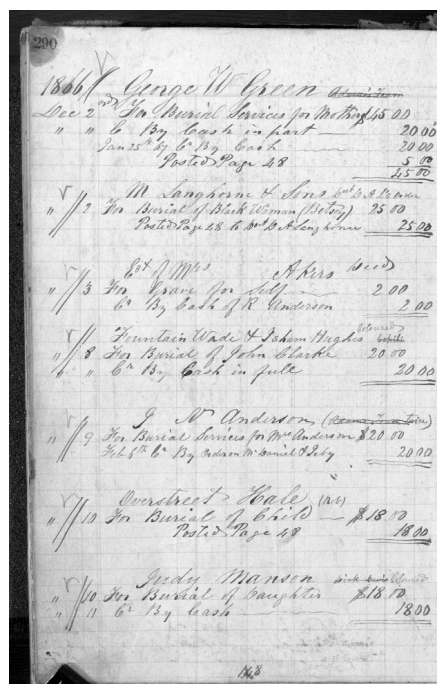 290
1866 George W Green
Dec 2nd For Burial Services for Mother $45 00
" " Cr By Cash in part — 20 00
Jan 25th 67 Cr By Cash 20 00
Posted Page 48 5 00
45 00
M Langhorne & Sons
" 2 For Burial of Black Woman (Betsey) 25 00
Posted Page 48 to 25 00
Est of Mrs Akers
" 3 For Grave for Self — 2 00
Cr By Cash of R Anderson 2 00
Fountain Wade & Isham Hughes Coloured
" 8 For Burial of John Clarke 20 00
" " Cr By Cash in full 20 00
J N Anderson
" 9 For Burial Services for Mrs Anderson $20 00
Feb 6th Cr By Order on McDaniel & Irby 20 00
Overstreet Hale
" 10 For Burial of Child — $18 00
Posted Page 48 18 00
Judy Manson Coloured
" 10 For Burial of Daughter $18 00
" 11 Cr By Cash 18 00